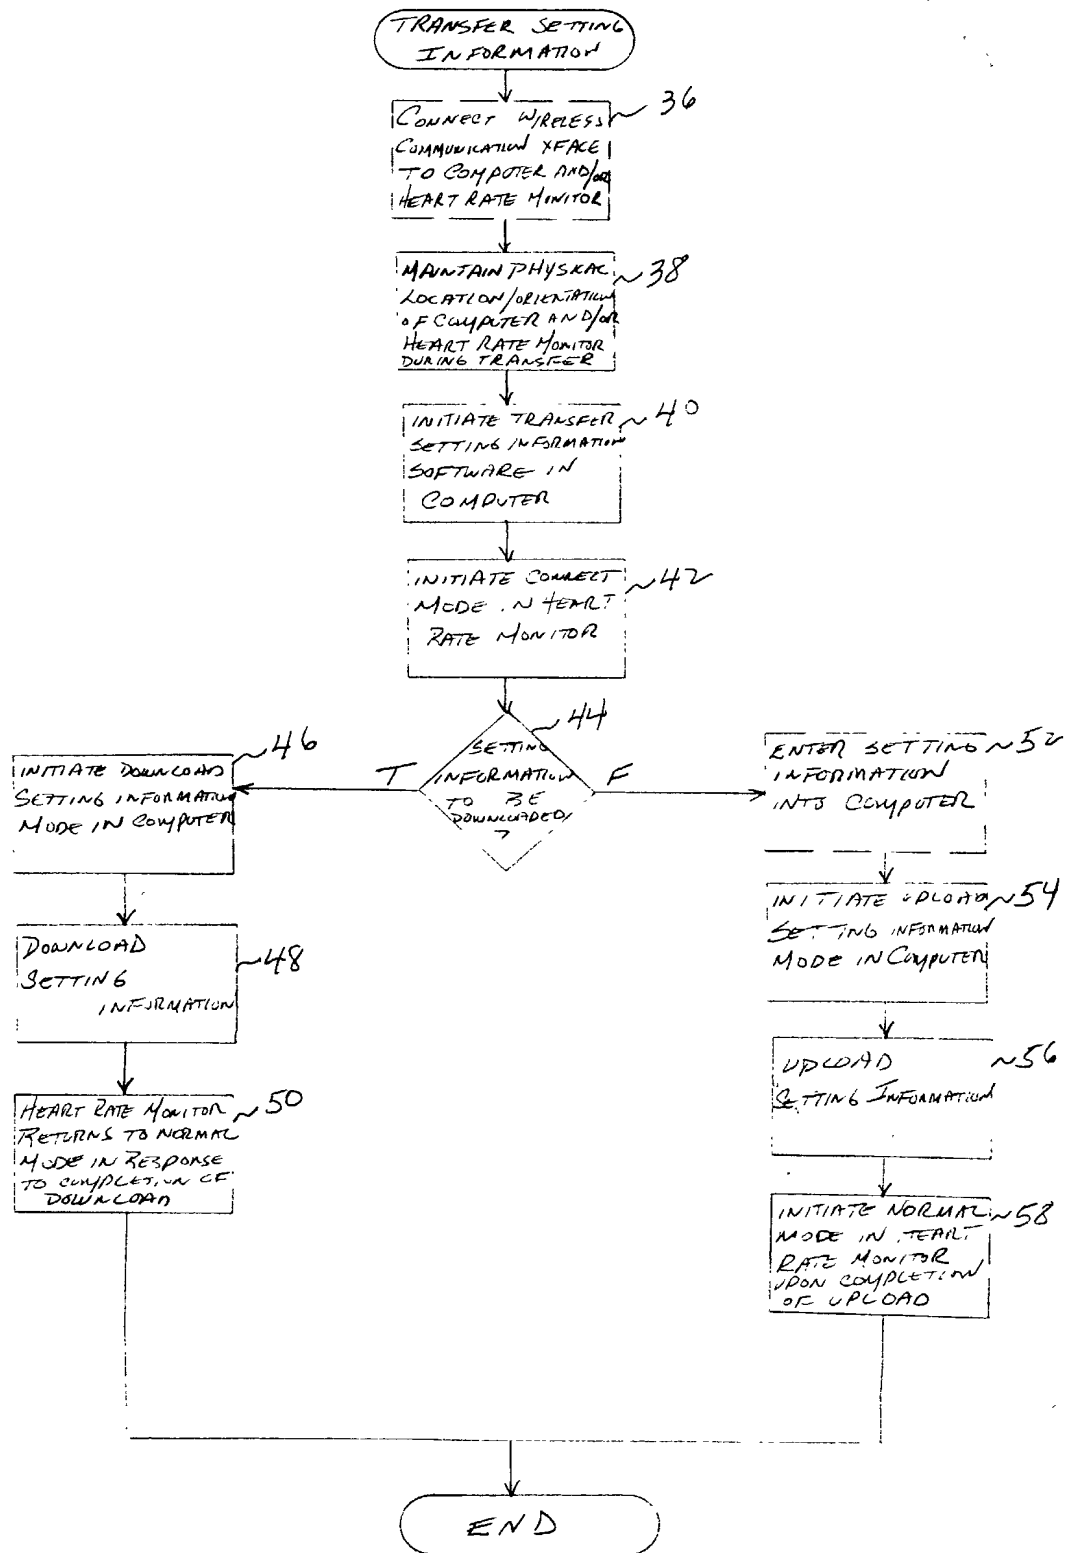 TRANSFER SETTING
INFORMATION
36
CONNECT WIRELESS
COMMUNICATION XFACE
TO COMPUTER AND/OR
HEART RATE MONITOR
38
MAINTAIN PHYSICAL
LOCATION/ORIENTATION
OF COMPUTER AND/OR
HEART RATE MONITOR
DURING TRANSFER
40
INITIATE TRANSFER
SETTING INFORMATION
SOFTWARE IN
COMPUTER
42
INITIATE CONNECT
MODE IN HEART
RATE MONITOR
44
SETTING
INFORMATION
TO BE
DOWNLOADED
?
T
F
46
INITIATE DOWNLOAD
SETTING INFORMATION
MODE IN COMPUTER
48
DOWNLOAD
SETTING
INFORMATION
50
HEART RATE MONITOR
RETURNS TO NORMAL
MODE IN RESPONSE
TO COMPLETION OF
DOWNLOAD
52
ENTER SETTING
INFORMATION
INTO COMPUTER
54
INITIATE UPLOAD
SETTING INFORMATION
MODE IN COMPUTER
56
UPLOAD
SETTING INFORMATION
58
INITIATE NORMAL
MODE IN HEART
RATE MONITOR
UPON COMPLETION
OF UPLOAD
END